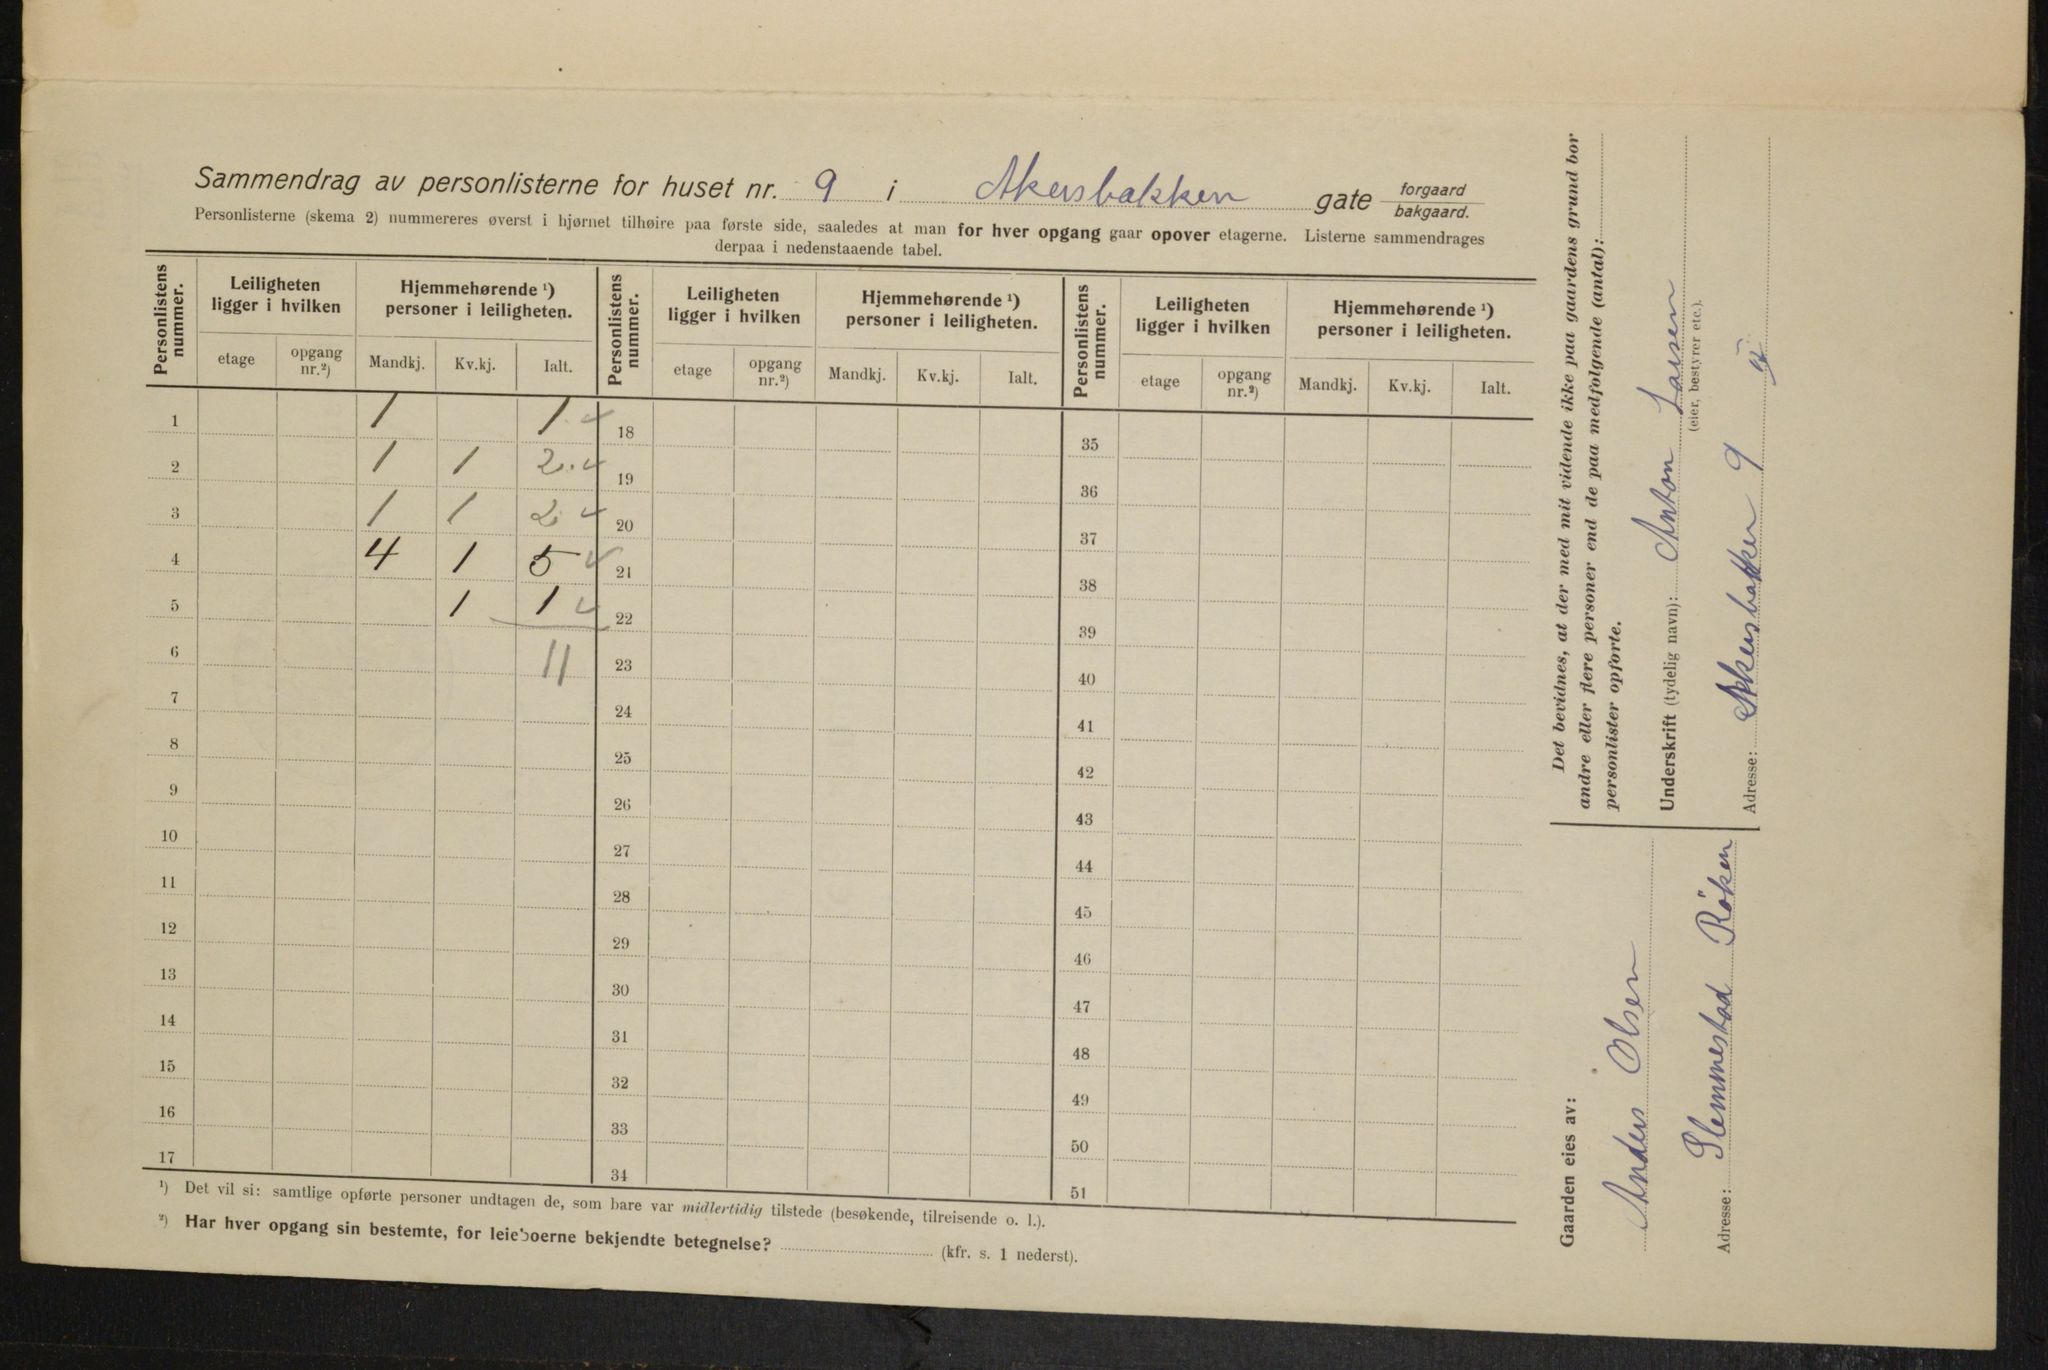 Sammendrag av personlisterne for huset nr. 9 i Akersbakken gate forgaard
bakgaard.
Personlisterne (skema 2) nummereres øverst i hjørnet tilhøire paa første side, saaledes at man for hver opgang gaar opover etagerne. Listerne sammendrages
derpaa i nedenstaaende tabel.
Personlistens nummer. Leiligheten ligger i hvilken Hjemmehørende ¹) personer i leiligheten. Personlistens nummer. Leiligheten ligger i hvilken Hjemmehørende ¹) personer i leiligheten. Personlistens nummer. Leiligheten ligger i hvilken Hjemmehørende ¹) personer i leiligheten.
etage opgang nr.²) Mandkj. Kv.kj. Ialt. etage opgang nr.²) Mandkj. Kv.kj. Ialt. etage opgang nr.²) Mandkj. Kv.kj. Ialt.
1 1 1 ✓ 18 35
2 1 1 2 ✓ 19 36
3 1 1 2 ✓ 20 37
4 4 1 5 ✓ 21 38
5 1 1 ✓ 22 39
6 11 23 40
7 24 41
8 25 42
9 26 43
10 27 44
11 28 45
12 29 46
13 30 47
14 31 48
15 32 49
16 33 50
17 34 51
¹) Det vil si: samtlige opførte personer undtagen de, som bare var midlertidig tilstede (besøkende, tilreisende o. l.).
²) Har hver opgang sin bestemte, for leieboerne bekjendte betegnelse? (kfr. s. 1 nederst).
Det bevidnes, at der med mit vidende ikke paa gaardens grund bor
andre eller flere personer end de paa medfølgende (antal):
personlister opførte.
Underskrift (tydelig navn): Anton Larsen
(eier, bestyrer etc.).
Adresse: Akersbakken 9
Gaarden eies av:
Anders Olsen
Adresse: Slemmestad Röken